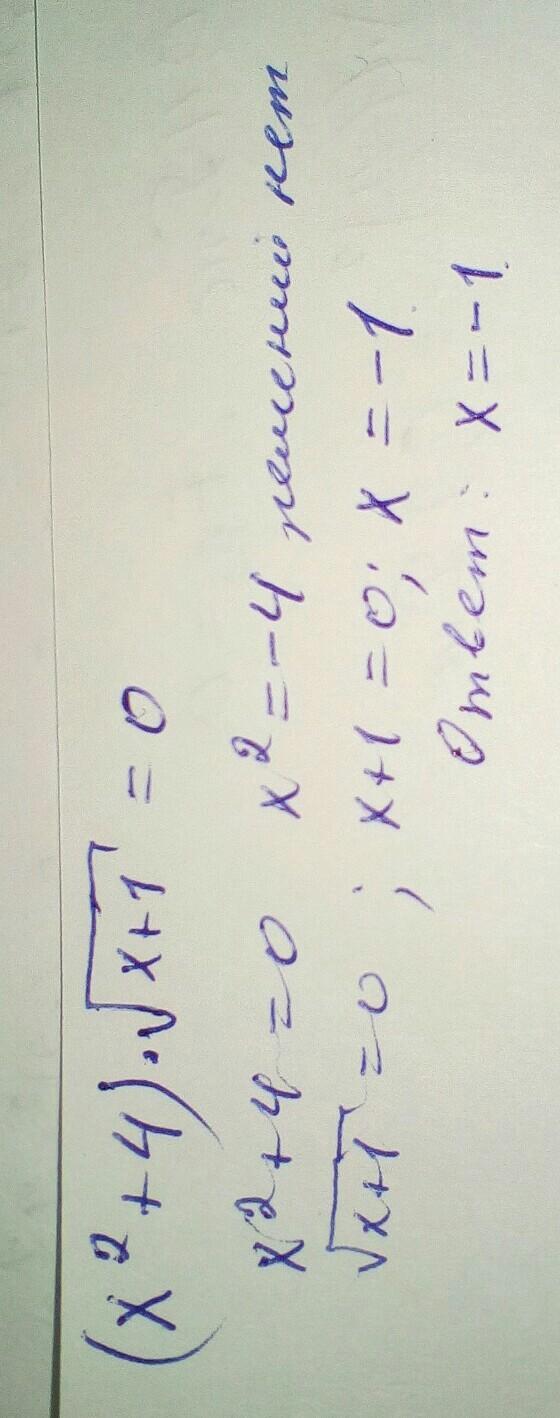 (x²+4)·√x+1 = 0
x²+4=0 x²=-4 решений нет
√x+1 =0 ; x+1=0; x=-1
Ответ: x=-1.